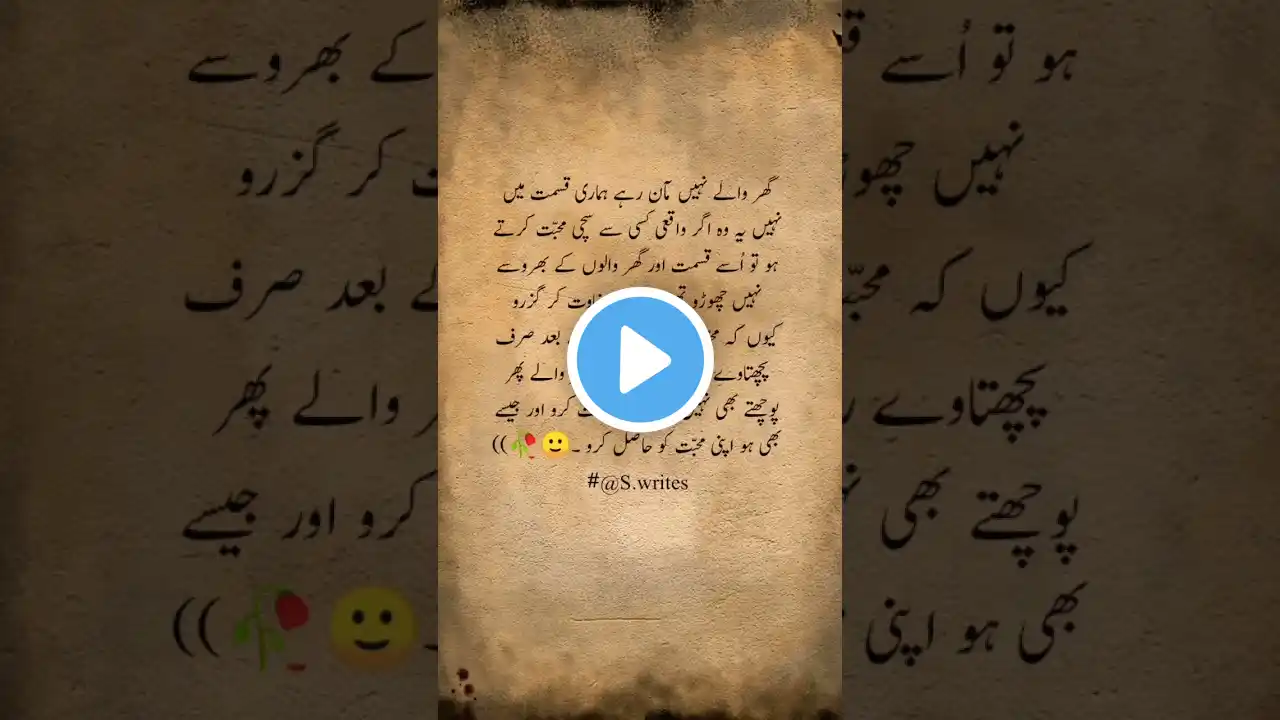 گھر والے نہیں مان رہے ہماری قسمت میں
نہیں یہ وہ اگر واقعی کسی سے سچی محبّت کرتے
ہو تو اُسے قسمت اور گھر والوں کے بھروسے
نہیں چھوڑو کر گزرو
کیوں کہ بعد صرف
پچھتاوے والے پھر
پوچھتے بھی کرو اور جیسے
بھی ہو اپنی محبّت کو حاصل کرو ۔🙂🥀))
#@S.writes